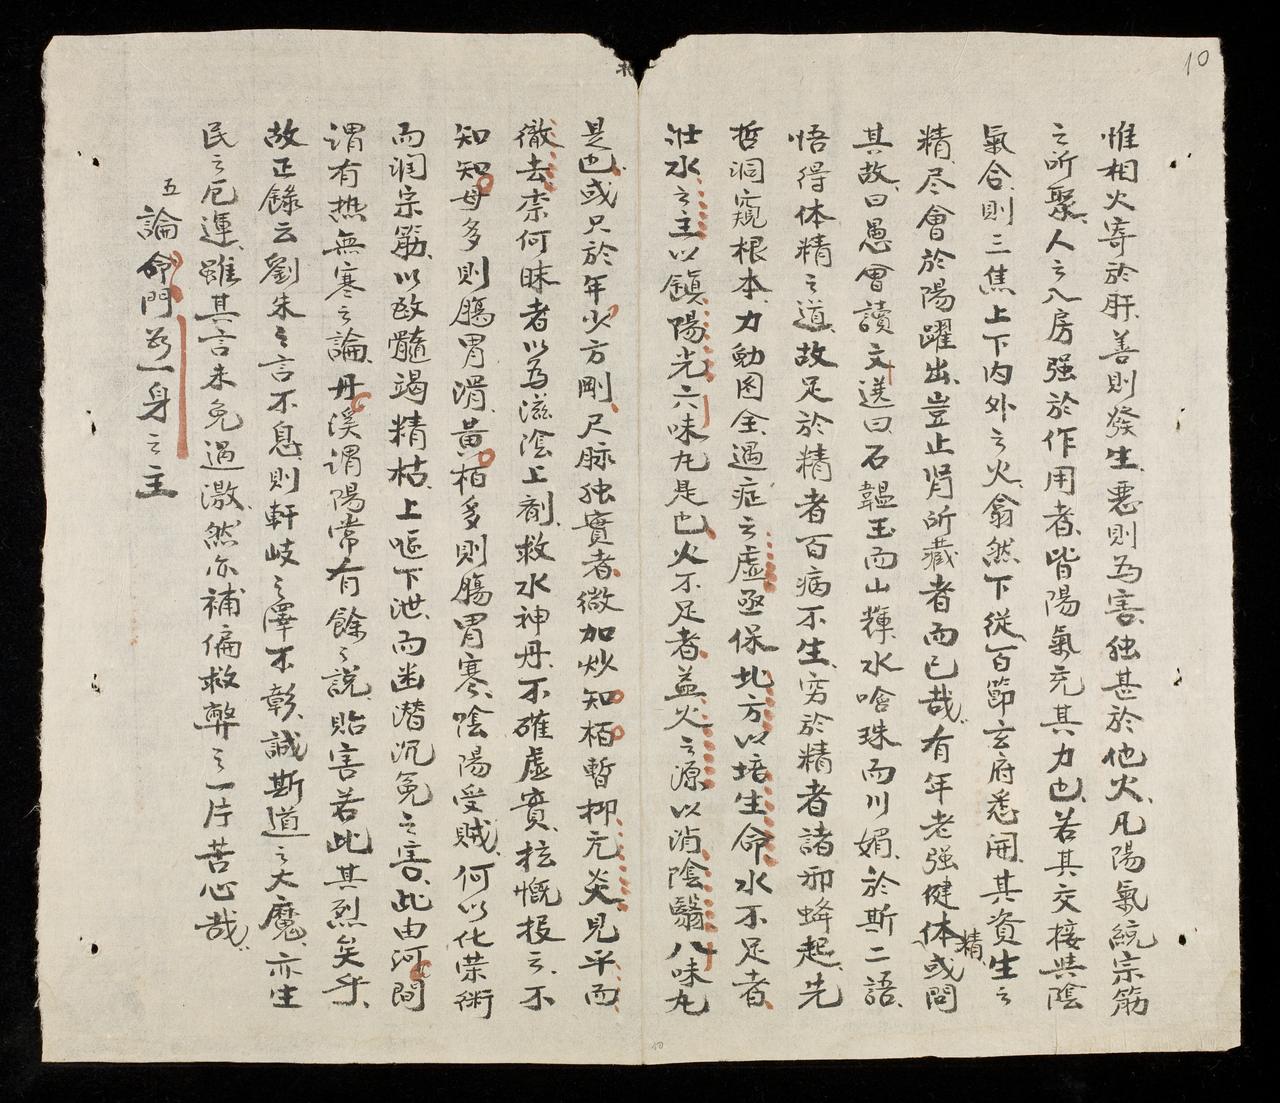 10
惟相火寄於肝、善則發生、惡則為害、独甚於他火、凡陽氣統宗筋
之所聚、人之入房强於作用者、皆陽氣充其力也、若其交接與陰
氣合、則三焦上下内外之火、翕然下從、百節玄府悉開、其資生之
精、尽會於陽躍出、豈止肾所藏者而已哉、有年老强健体精或問
其故、曰愚會讀文选曰石韞玉而山輝、水唅珠而川媚、於斯二語、
悟得体精之道、故足於精者百病不生、穷於精者諸邪蜂起、先
哲洞窺根本、力勉图全、遇症之虛亟保北方以培生命、水不足者、
壮水之主以鎮陽光六味丸是也、火不足者益火之源以消陰翳八味丸
是也、或只於年少方剛、尺脉独實者、微加炒知栢暫抑亢炎、見平而
徹去、柰何昧者以為滋陰上剤、救水神丹、不確虛實、槩投之、不
知知母多則膓胃滑、黃栢多則膓胃寒、陰陽受賊、何以化荣衛
而润宗筋、以致髓竭精枯、上嘔下泄、而凼潜沉冤之害、此由河間
谓有热無寒之論、丹溪谓陽常有餘之説、貽害若此其烈矣乎、
故正錄云劉朱之言不息、則軒岐之澤不彰、誠斯道之大魔、亦生
民之厄運、雖其言未免過激、然亦補偏救弊之一片苦心哉、
五 論命門為一身之主
10